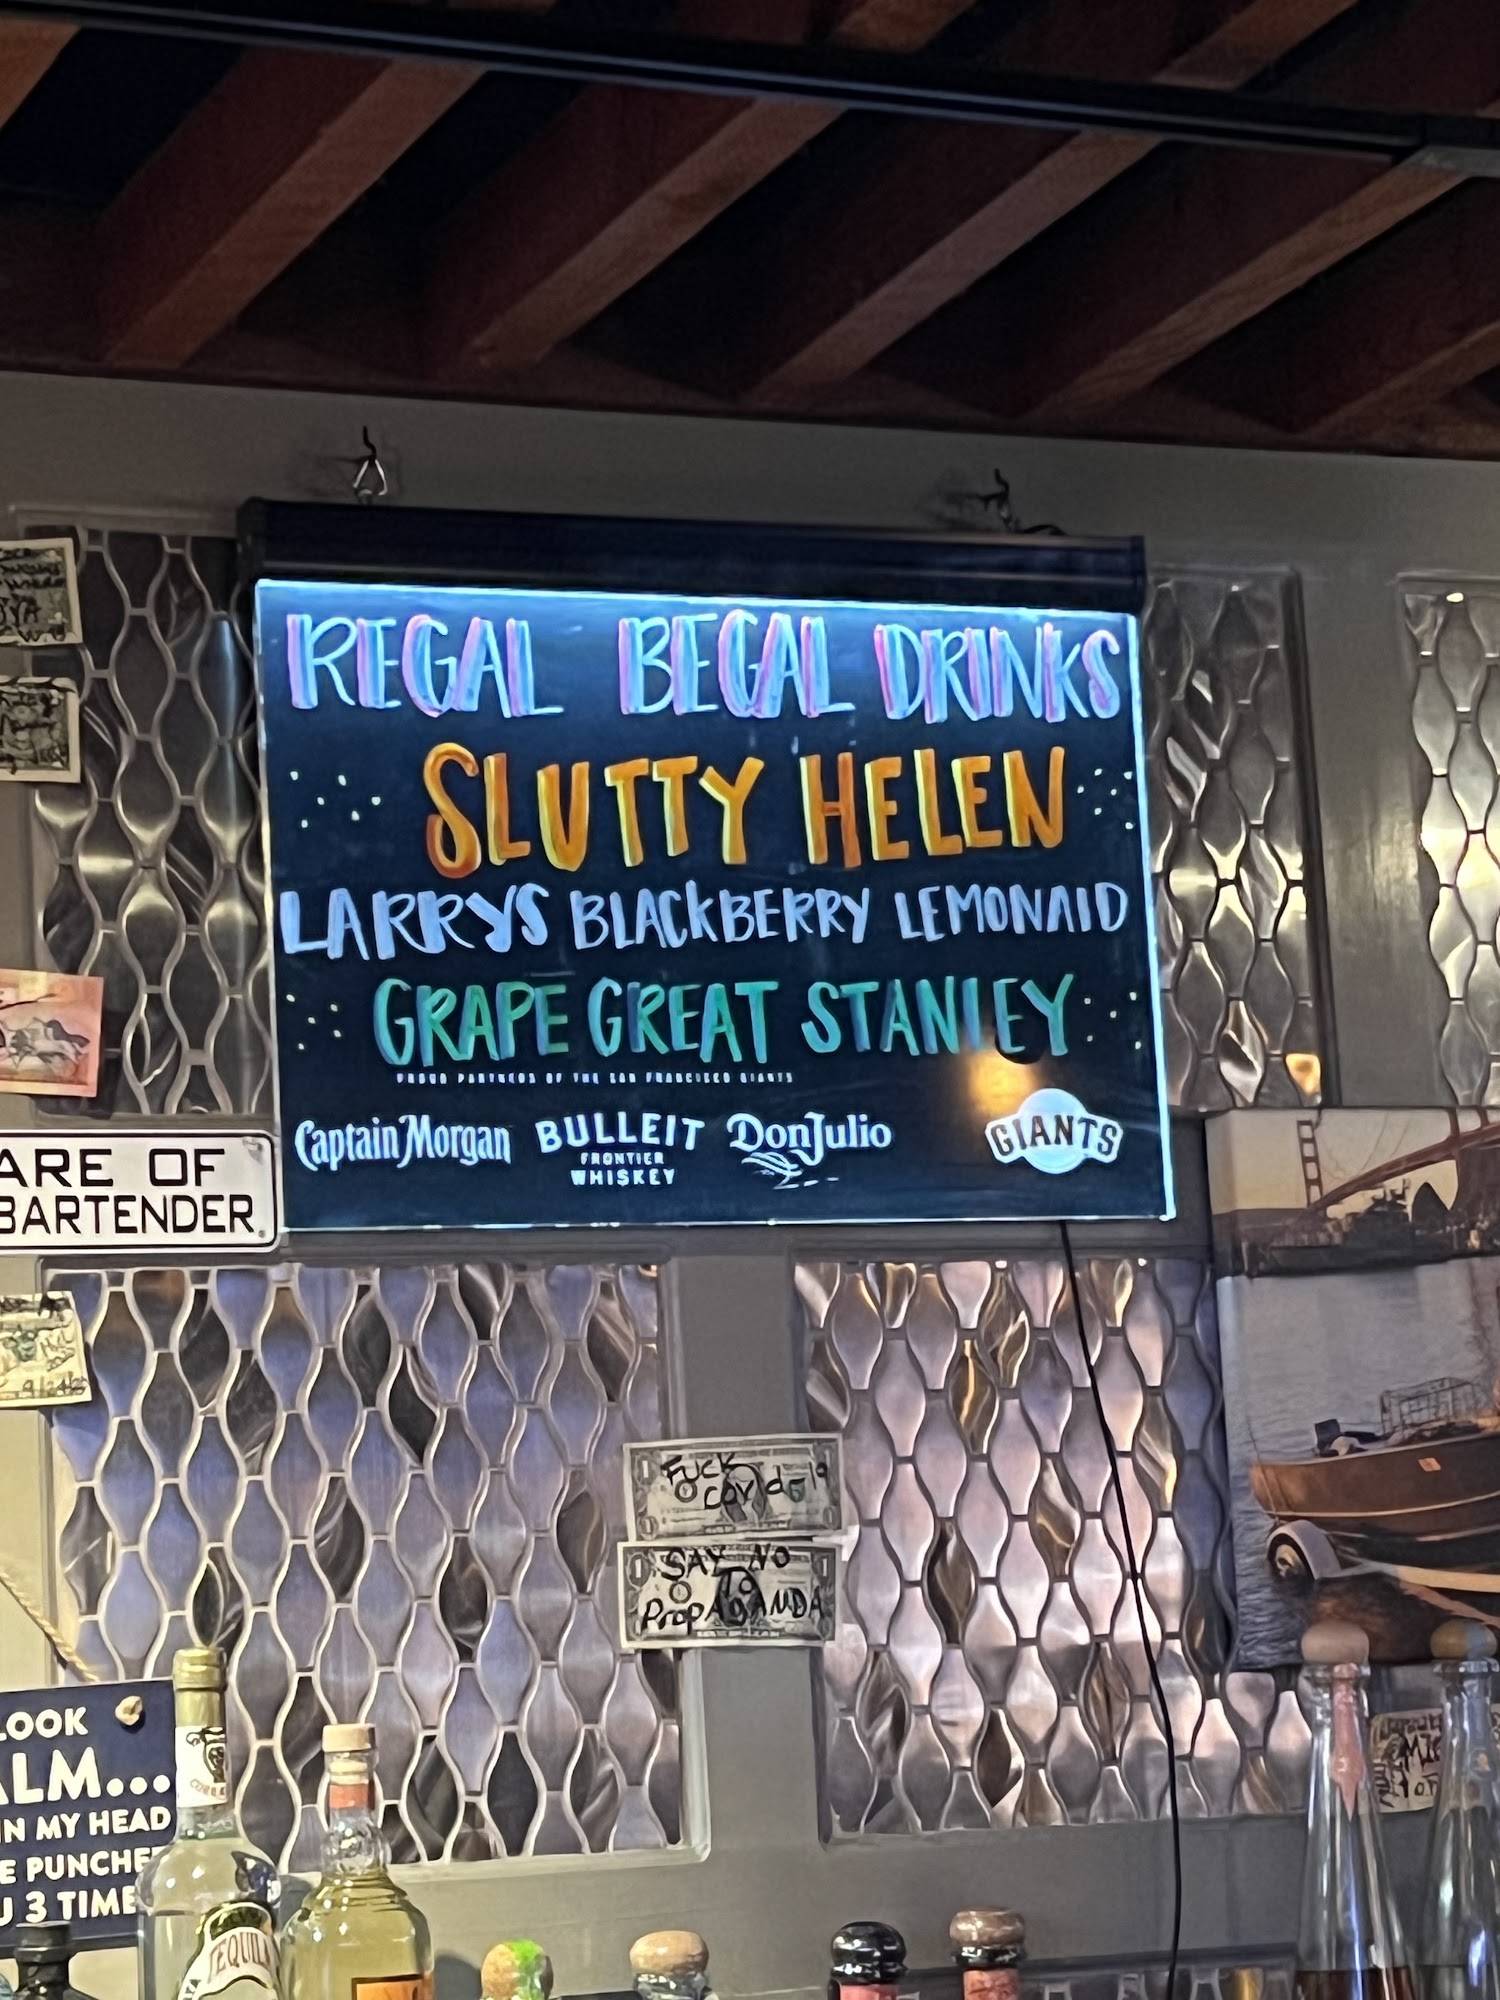 REGAL BEGAL DRINKS
SLUTTY HELEN
LARRYS BLACKBERRY LEMONAID
GRAPE GREAT STANLEY
PROUD PARTNERS OF THE SAN FRANCISCO GIANTS
Captain Morgan
BULLEIT
FRONTIER
WHISKEY
Don Julio
GIANTS
ARE OF
BARTENDER
FUCK
COVID-19
SAY NO
TO
PROPAGANDA
LOOK
ALM...
IN MY HEAD
E PUNCHE
U 3 TIME
TEQUILA